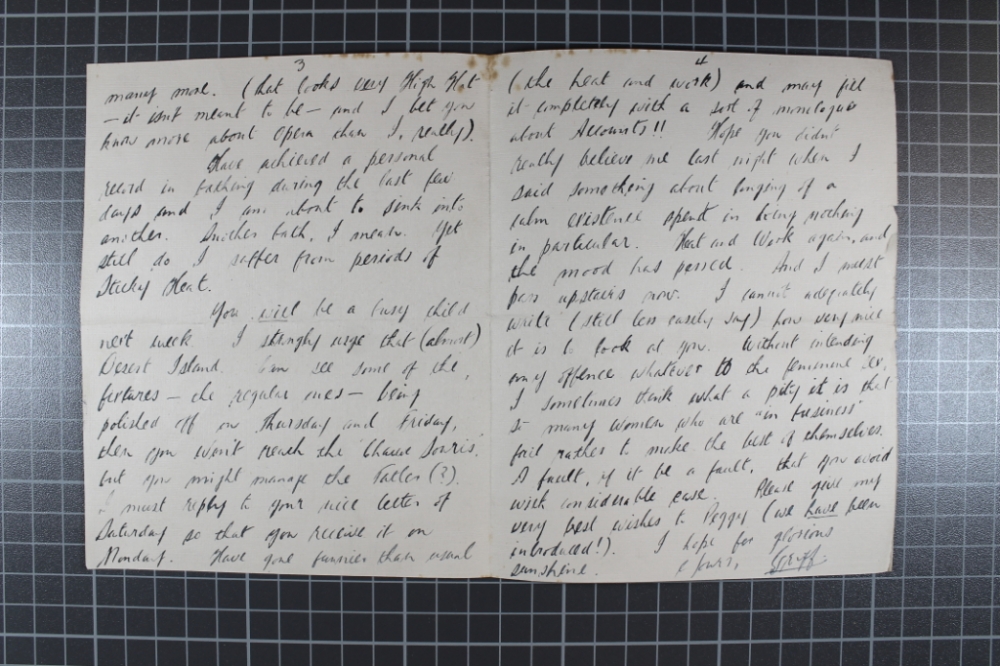 3
many more. (that looks very High Hat
– it isn't meant to be – and I bet you
know more about Opera than I, really).
Have achieved a personal
record in bathing during the last few
days and I am about to sink into
another. Another bath, I mean. Yet
still do I suffer from periods of
Sticky Heat.
You will be a busy child
next week. I strongly urge that (almost)
Desert Island. Can see some of the
fixtures – the regular ones – being
polished off on Thursday and Friday,
then you won't reach the 'Chauve Souris'
but you might manage the Tatler (?).
I must reply to your nice letter of
Saturday so that you receive it on
Monday. Have gone funnier than usual
4
(the heat and work) and may fill
it completely with a sort of monologue
about Accounts!! Hope you didn't
really believe me last night when I
said something about longing of a
calm existence spent in doing nothing
in particular. Heat and Work again, and
the mood has passed. And I must
pass upstairs now. I cannot adequately
write (still less easily say) how very nice
it is to look at you. Without intending
any offence whatever to the feminine sex,
I sometimes think what a pity it is that
so many women who are "in business"
fail rather to make the best of themselves.
A fault, if it be a fault, that you avoid
with considerable ease. Please give my
very best wishes to Peggy (we have been
introduced!). I hope for glorious
sunshine. Yours, Griff